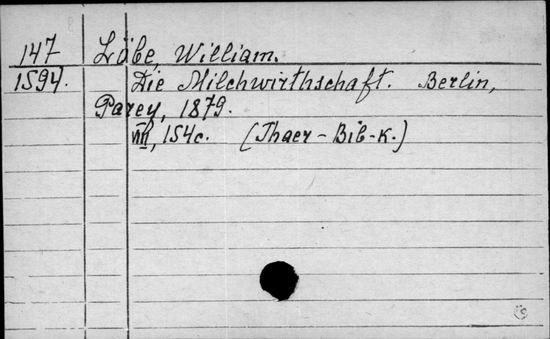 147 Löbe, William.
1594. Die Milchwirthschaft. Berlin,
Parey, 1879.
VIII, 154c. (Thaer-Bib-K.)